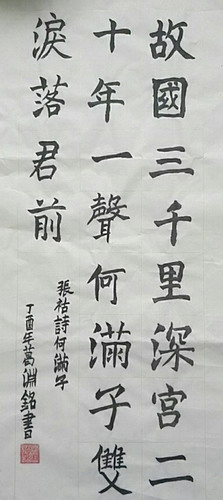 故國三千里深宮二
十年一聲何滿子雙
淚落君前
張祜詩何滿子
丁酉年葛淵銘書